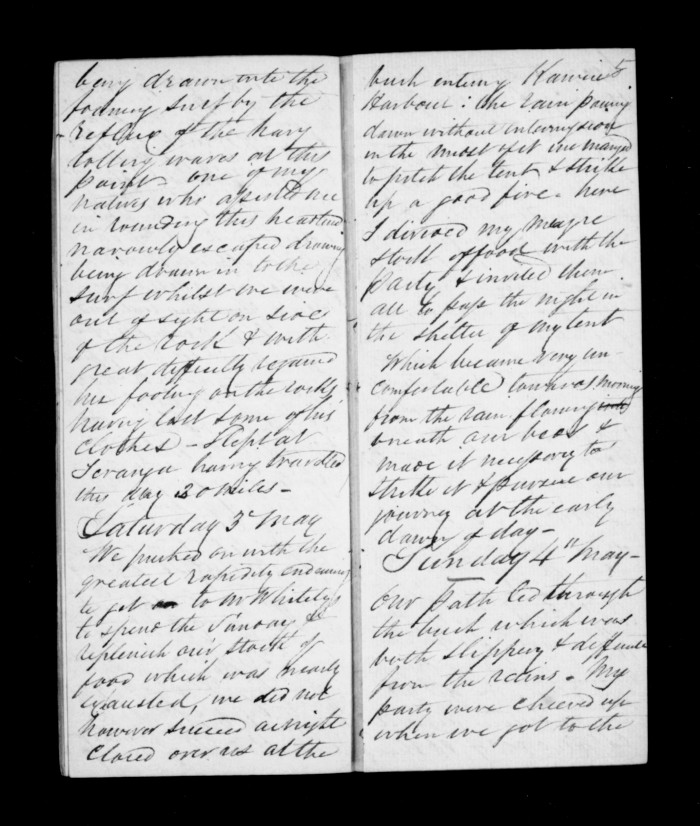 being drawn into the
foaming surf by the
Reflux of the heavy
rolling waves at this
point – one of my
natives who assisted me
in rounding this headland
narrowly escaped drowning
being drawn in to the
surf whilst we were
out of sight on side
of the rock & with
great difficulty regained
his footing on the rocks
having lost some of his
clothes – Slept at
Teranga having travelled
this day 20 miles –
Saturday 3d May
We pushed on with the
greatest rapidity endeavouring
to get to Mr Whitelys
to spend the Sunday &
replenish our stock of
food which was nearly
exhausted, we did not
however succeed as night
closed over us at the
5
bush entering Kawia
Harbour: the rain pouring
down without intermission
in the midst of it we managed
to pitch the tent & strike
up a good fire – here
I divided my meagre
stock of food with the
party & invited them
all to pass the night in
the shelter of my tent
Which became very un-
comfortable towards morning
from the rain flowing
beneath our beds &
made it necessary to
strike it & pursue our
journey at the early
dawn of day –
Sunday 4th May –
Our path led through
the bush which was
both slippery & difficult
from the rains – My
party were cheered up
when we got to the